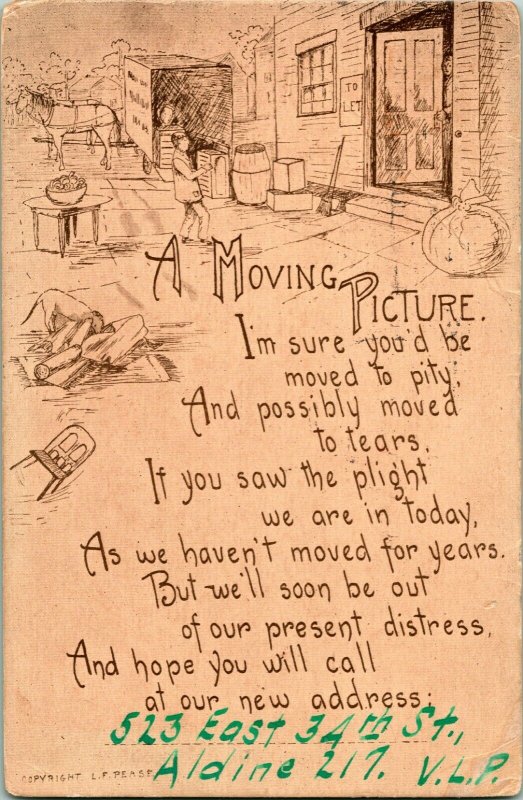 TO
LET
A MOVING PICTURE.
I'm sure you'd be
moved to pity,
And possibly moved
to tears,
If you saw the plight
we are in today,
As we haven't moved for years.
But we'll soon be out
of our present distress,
And hope you will call
at our new address:
523 East 34th St.,
Aldine 217. V.L.P.
COPYRIGHT L.F. PEASE